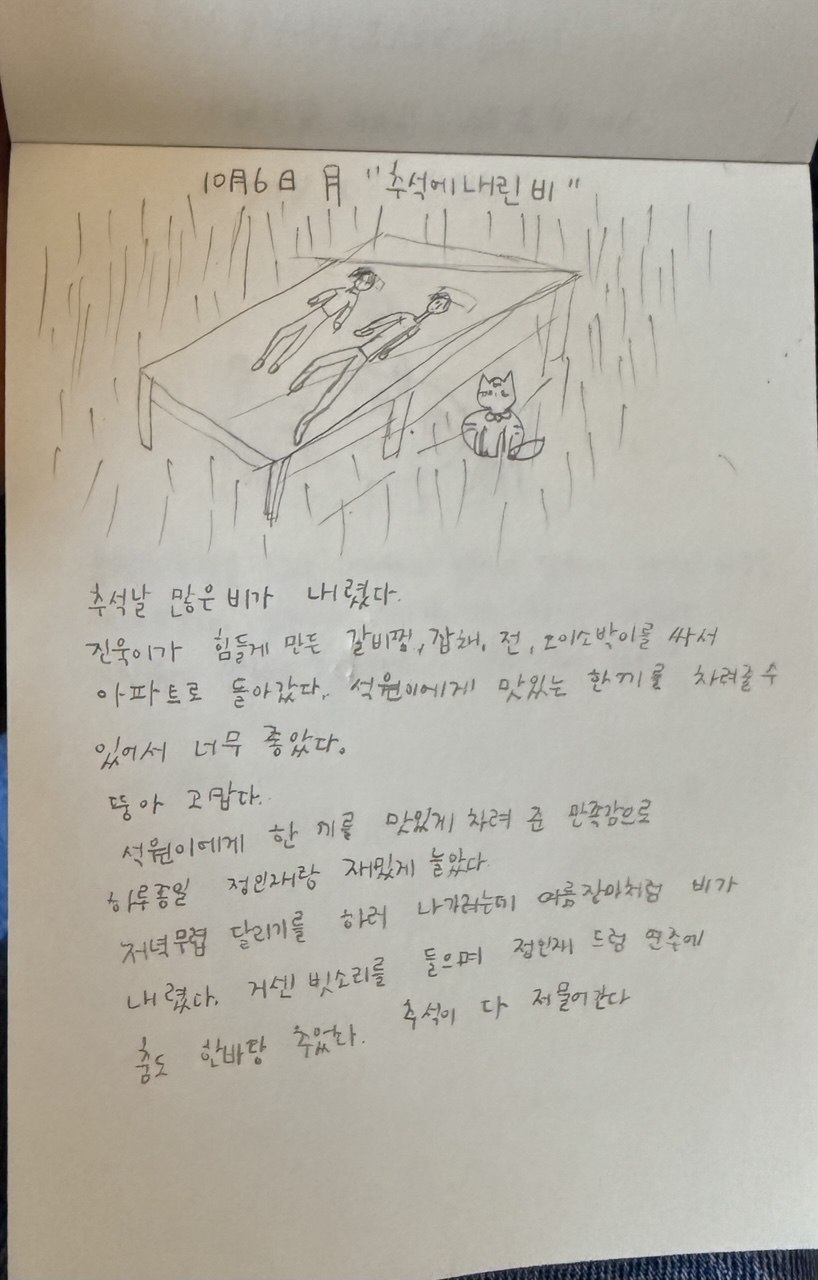 10月6日 月 "추석에 내린 비"
추석날 많은 비가 내렸다.
진욱이가 힘들게 만든 갈비찜, 잡채, 전, 오이소박이를 싸서
아파트로 돌아갔다. 석원이에게 맛있는 한끼를 차려줄 수
있어서 너무 좋았다.
뚱아 고맙다.
석원이에게 한 끼를 맛있게 차려 준 만족감으로
하루종일 정인재랑 재밌게 놀았다.
저녁무렵 달리기를 하러 나가려는데 여름장마처럼 비가
내렸다. 거센 빗소리를 들으며 정인재 드럼 연주에
춤도 한바탕 추었다. 추석이 다 저물어간다